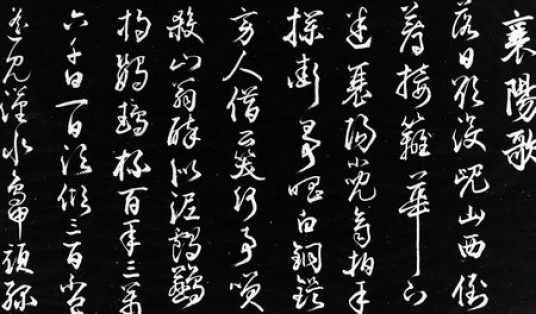 襄陽歌
落日欲沒峴山西倒
著接籬華下
迷襄陽小兒齊拍手
攔街爭唱白銅鍉
旁人借問笑何事笑
殺山翁醉似泥鸕鶿
杓鸚鵡杯百年三萬
六千日一日須傾三百杯
遙見漢水鴨頭綠